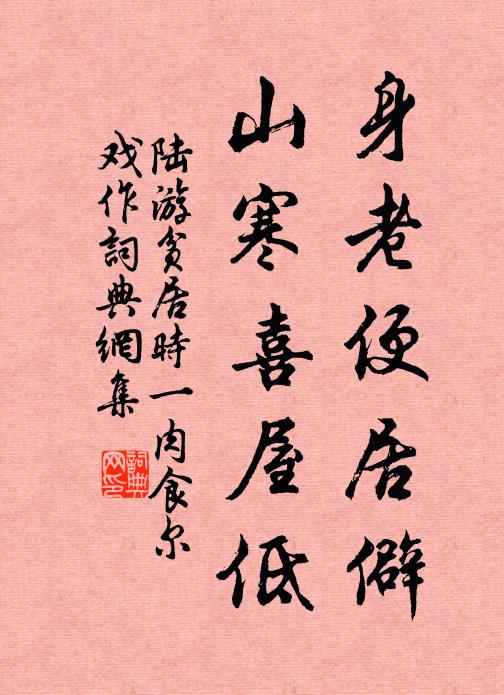 身老便居僻
山寒喜屋低
陆游贫居時一肉食尔
戏作詞典網集
詞典
网印